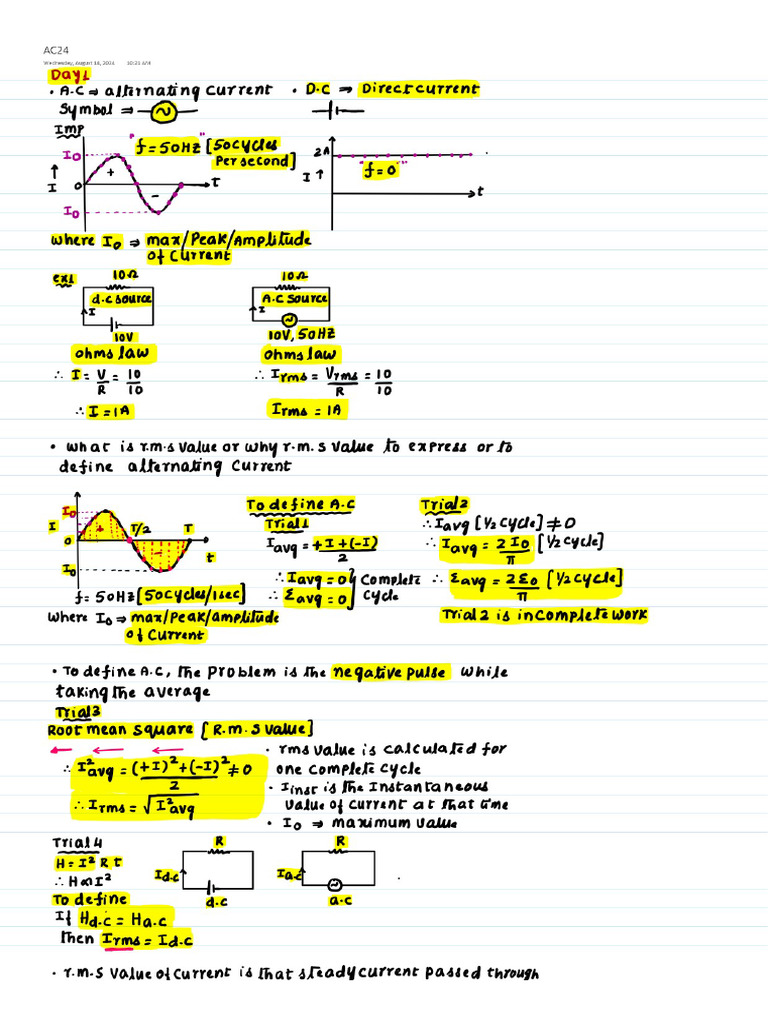 AC24
Wednesday, August 14, 2024 10:21 AM
Day1
• A.C ⇒ alternating current • D.C ⇒ Direct current
Symbol ⇒ ~
IMP
"f = 50HZ" [50cycles Per second]
I0 + - I0 I 0 t
2A I "f = 0" t
where I0 ⇒ max/Peak/Amplitude
of Current
ex1 10Ω 10Ω
d.c source A.C source
I I
10V 10V, 50HZ
ohms law ohms law
∴ I = V/R = 10/10 ∴ Irms = Vrms/R = 10/10
∴ I = 1A Irms = 1A
• what is r.m.s value or why r.m.s value to express or to
define alternating current
I0 I 0 I0 + - T/2 T t
f = 50HZ [50cycles/1sec]
where I0 ⇒ max/Peak/amplitude
of current
To define A.C
Trial1
Iavg = +I+(-I)/2
∴ Iavg = 0
∴ Ɛavg = 0 } Complete cycle
Trial2
∴ Iavg [1/2 cycle] ≠ 0
∴ Iavg = 2I0/π [1/2 cycle]
∴ Ɛavg = 2Ɛ0/π [1/2 cycle]
Trial 2 is incomplete work
• To define A.C, the problem is the negative pulse while
taking the average
Trial3
Root mean square [R.m.s value]
∴ I²avg = (+I)²+(-I)²/2 ≠ 0
∴ Irms = √I²avg
• rms value is calculated for
one complete cycle
• Iinst is the Instantaneous
value of current at that time
• I0 ⇒ maximum value
Trial4
H = I² R t
∴ H ∝ I²
R R
Id.c Ia.c
d.c a.c
To define
If Hd.c = Ha.c
then Irms = Id.c
• r.m.s value of current is that steady current passed through